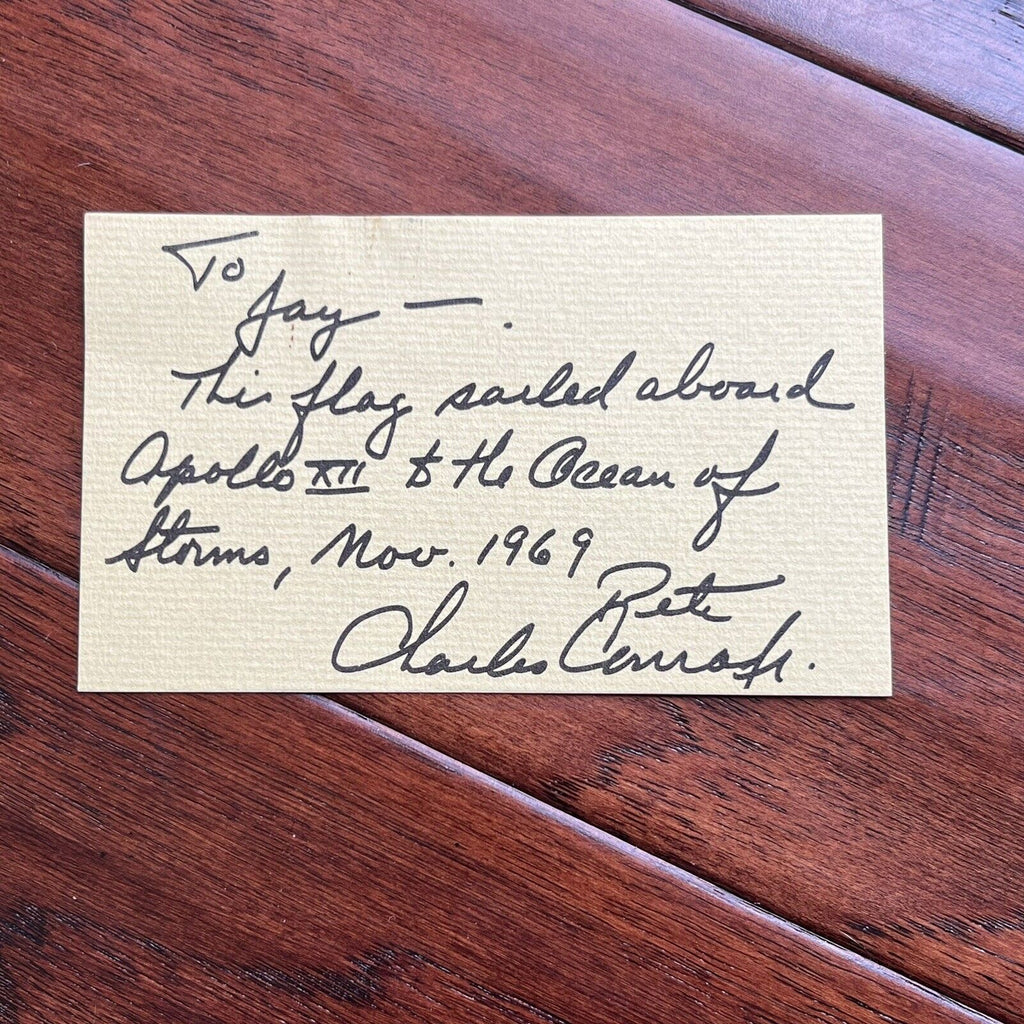 To
Jay —.
This flag sailed aboard
Apollo XII to the Ocean of
Storms, Nov. 1969
Pete
Charles Conrad Jr.